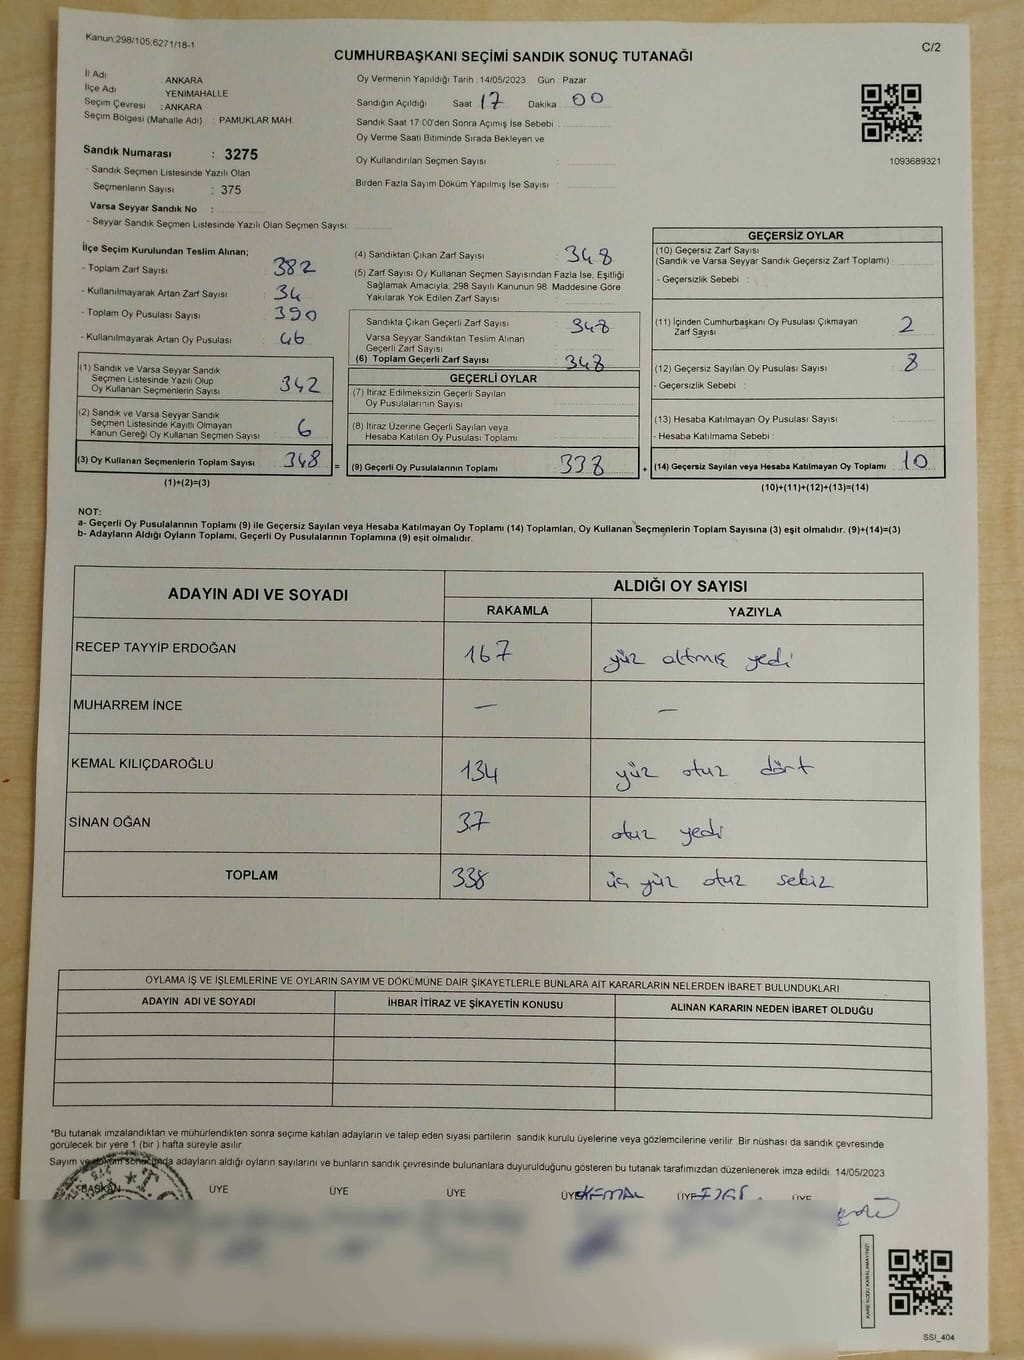 Kanun:298/105;6271/18-1
C/2
CUMHURBAŞKANI SEÇİMİ SANDIK SONUÇ TUTANAĞI
İl Adı : ANKARA
İlçe Adı : YENİMAHALLE
Seçim Çevresi : ANKARA
Seçim Bölgesi (Mahalle Adı) : PAMUKLAR MAH.
Sandık Numarası : 3275
- Sandık Seçmen Listesinde Yazılı Olan
Seçmenlerin Sayısı : 375
Varsa Seyyar Sandık No :
- Seyyar Sandık Seçmen Listesinde Yazılı Olan Seçmen Sayısı:
Oy Vermenin Yapıldığı Tarih 14/05/2023 Gün Pazar
Sandığın Açıldığı Saat 17 Dakika 00
Sandık Saat 17:00'den Sonra Açımış İse Sebebi :
Oy Verme Saati Bitiminde Sırada Bekleyen ve
Oy Kullandırılan Seçmen Sayısı :
Birden Fazla Sayım Döküm Yapılmış İse Sayısı :
1093689321
İlçe Seçim Kurulundan Teslim Alınan;
- Toplam Zarf Sayısı : 382
- Kullanılmayarak Artan Zarf Sayısı : 34
- Toplam Oy Pusulası Sayısı : 390
- Kullanılmayarak Artan Oy Pusulası : 46
(1) Sandık ve Varsa Seyyar Sandık
Seçmen Listesinde Yazılı Olup
Oy Kullanan Seçmenlerin Sayısı : 342
(2) Sandık ve Varsa Seyyar Sandık
Seçmen Listesinde Kayıtlı Olmayan
Kanun Gereği Oy Kullanan Seçmen Sayısı : 6
(3) Oy Kullanan Seçmenlerin Toplam Sayısı : 348
(1)+(2)=(3)
=
(4) Sandıktan Çıkan Zarf Sayısı : 348
(5) Zarf Sayısı Oy Kullanan Seçmen Sayısından Fazla İse, Eşitliği
Sağlamak Amacıyla; 298 Sayılı Kanunun 98. Maddesine Göre
Yakılarak Yok Edilen Zarf Sayısı :
Sandıkta Çıkan Geçerli Zarf Sayısı : 348
Varsa Seyyar Sandıktan Teslim Alınan
Geçerli Zarf Sayısı :
(6) Toplam Geçerli Zarf Sayısı : 348
GEÇERLİ OYLAR
(7) İtiraz Edilmeksizin Geçerli Sayılan
Oy Pusulalarının Sayısı :
(8) İtiraz Üzerine Geçerli Sayılan veya
Hesaba Katılan Oy Pusulası Toplamı :
(9) Geçerli Oy Pusulalarının Toplamı : 338
+
GEÇERSİZ OYLAR
(10) Geçersiz Zarf Sayısı
(Sandık ve Varsa Seyyar Sandık Geçersiz Zarf Toplamı) :
- Geçersizlik Sebebi :
(11) İçinden Cumhurbaşkanı Oy Pusulası Çıkmayan
Zarf Sayısı : 2
(12) Geçersiz Sayılan Oy Pusulası Sayısı : 8
- Geçersizlik Sebebi :
(13) Hesaba Katılmayan Oy Pusulası Sayısı :
- Hesaba Katılmama Sebebi :
(14) Geçersiz Sayılan veya Hesaba Katılmayan Oy Toplamı : 10
(10)+(11)+(12)+(13)=(14)
NOT:
a- Geçerli Oy Pusulalarının Toplamı (9) ile Geçersiz Sayılan veya Hesaba Katılmayan Oy Toplamı (14) Toplamları, Oy Kullanan Seçmenlerin Toplam Sayısına (3) eşit olmalıdır. (9)+(14)=(3)
b- Adayların Aldığı Oyların Toplamı, Geçerli Oy Pusulalarının Toplamına (9) eşit olmalıdır.
ADAYIN ADI VE SOYADI ALDIĞI OY SAYISI
RAKAMLA YAZIYLA
RECEP TAYYİP ERDOĞAN 167 yüz altmış yedi
MUHARREM İNCE — —
KEMAL KILIÇDAROĞLU 134 yüz otuz dört
SİNAN OĞAN 37 otuz yedi
TOPLAM 338 üç yüz otuz sekiz
OYLAMA İŞ VE İŞLEMLERİNE VE OYLARIN SAYIM VE DÖKÜMÜNE DAİR ŞİKAYETLERLE BUNLARA AİT KARARLARIN NELERDEN İBARET BULUNDUKLARI
ADAYIN ADI VE SOYADI İHBAR İTİRAZ VE ŞİKAYETİN KONUSU ALINAN KARARIN NEDEN İBARET OLDUĞU
*Bu tutanak imzalandıktan ve mühürlendikten sonra seçime katılan adayların ve talep eden siyasi partilerin sandık kurulu üyelerine veya gözlemcilerine verilir. Bir nüshası da sandık çevresinde
görülecek bir yere 1 (bir ) hafta süreyle asılır.
Sayım ve döküm sonucunda adayların aldığı oyların sayılarını ve bunların sandık çevresinde bulunanlara duyurulduğunu gösteren bu tutanak tarafımızdan düzenlenerek imza edildi. 14/05/2023
BAŞKAN ÜYE ÜYE ÜYE ÜYE KEMAL ÜYE ÜYE
KARE KODU KARALAMAYINIZ!
SSI_404